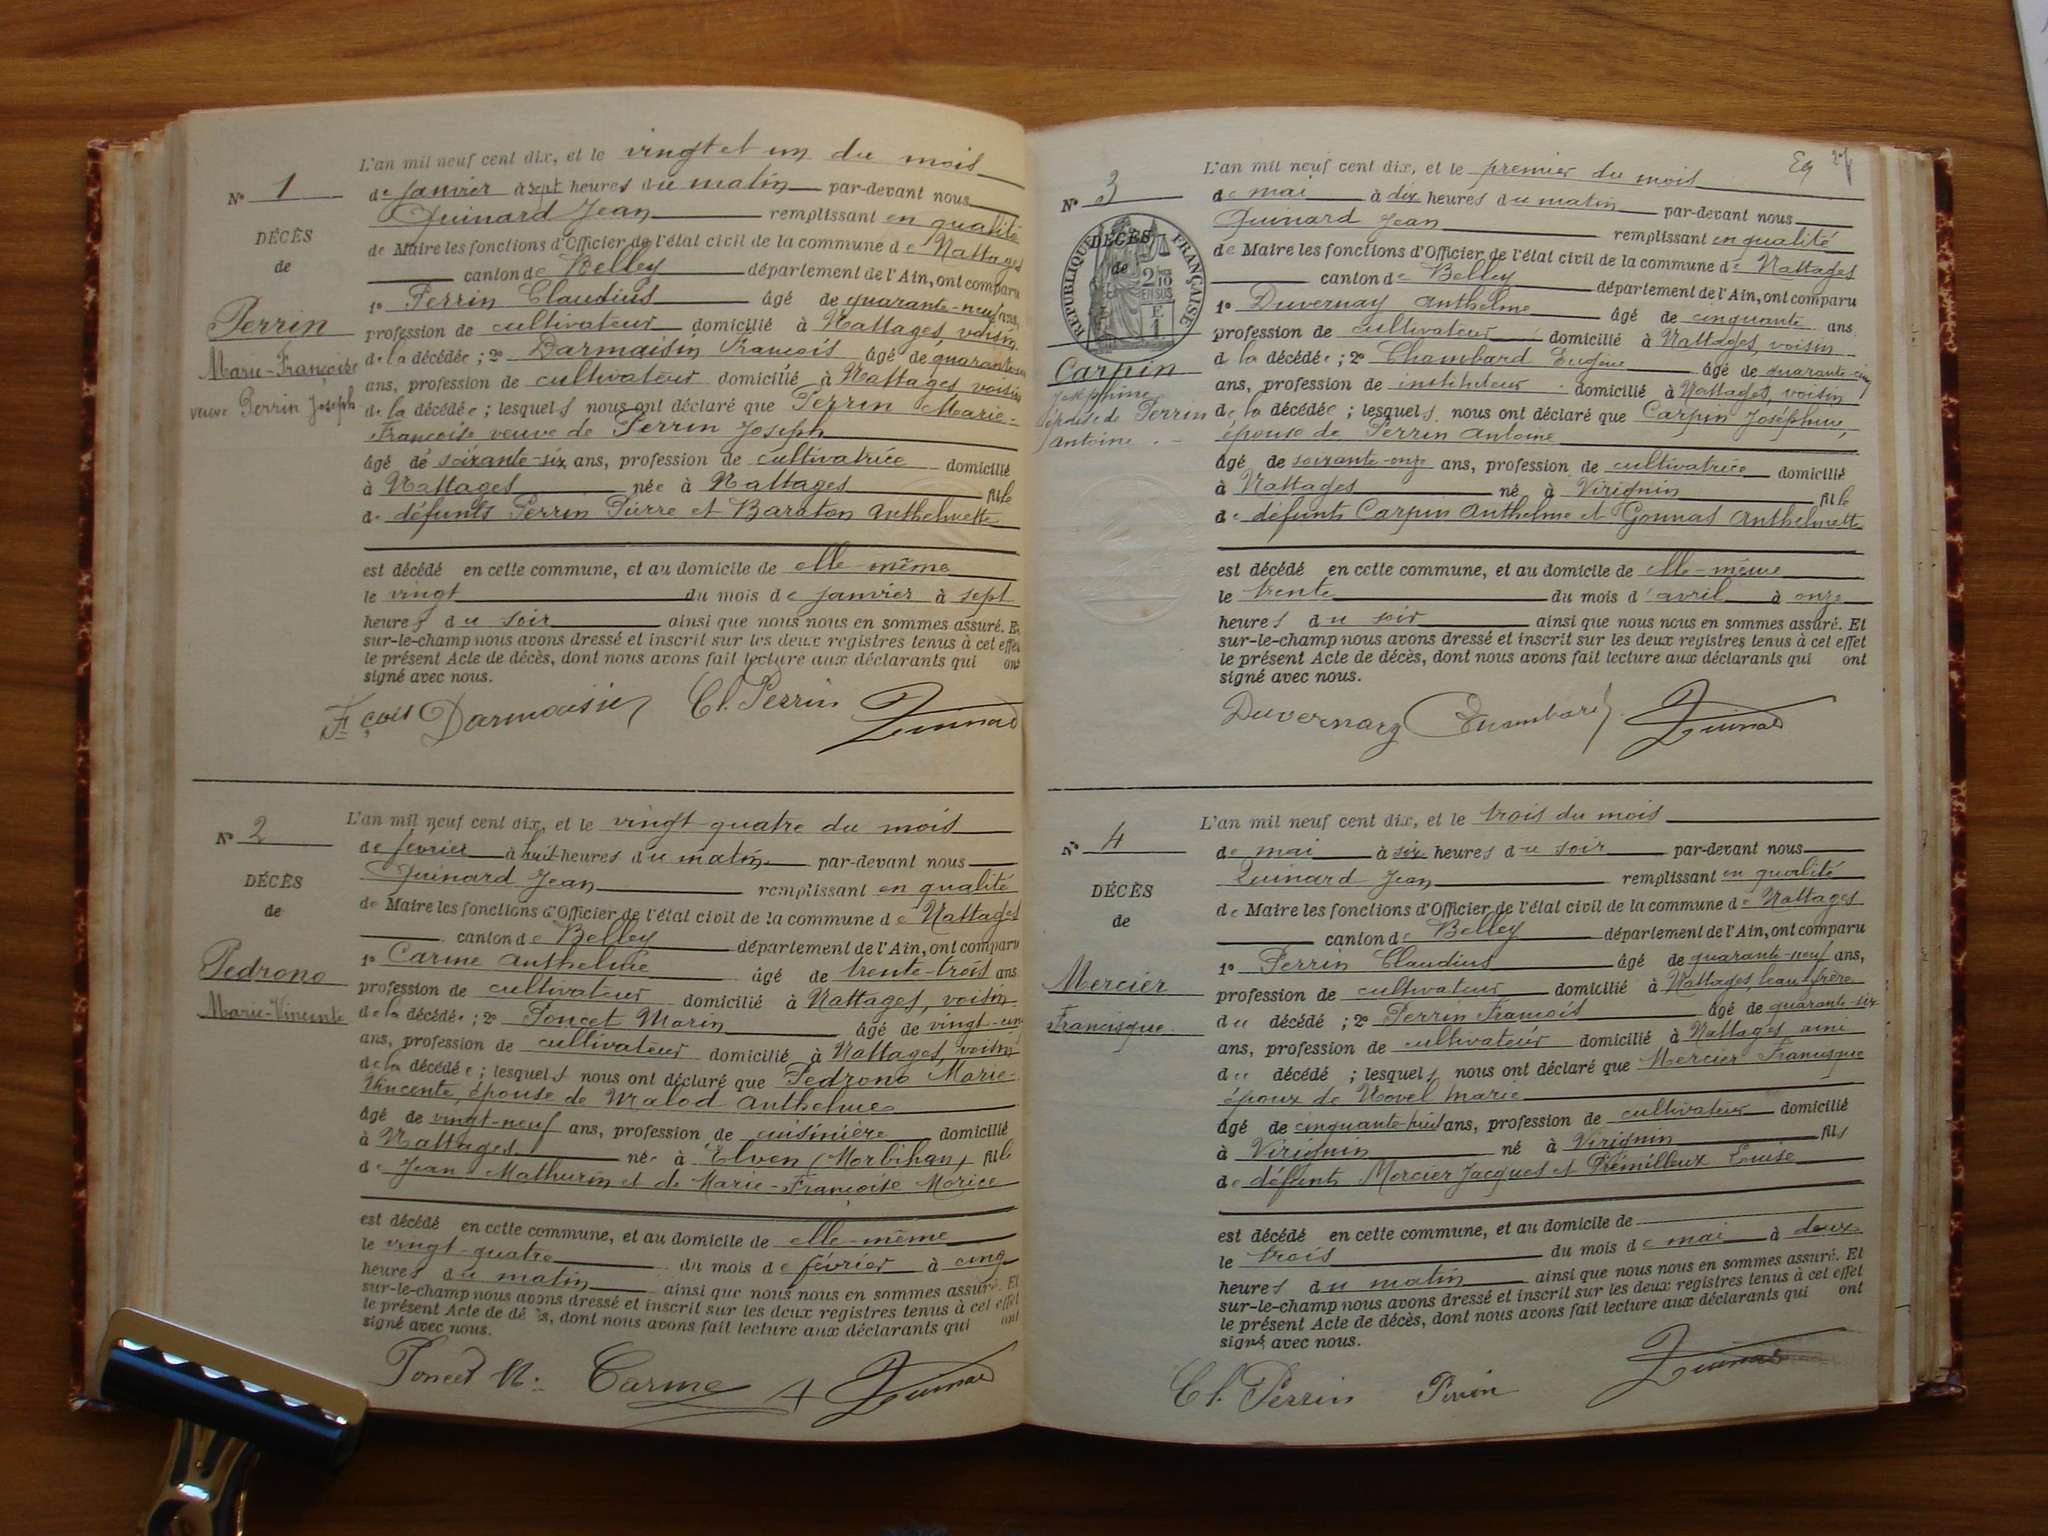 L'an mil neuf cent dix, et le vingt et un du mois
N° 1 de janvier à sept heures du matin par-devant nous
Quinard Jean remplissant en qualité
DÉCÈS
de Maire les fonctions d'Officier de l'état civil de la commune de Nattages
de
canton de Belley département de l'Ain, ont comparu
1° Perrin Claudius âgé de quarante-neuf ans,
Perrin
profession de cultivateur domicilié à Nattages, voisin
Marie-Françoise
de la décédée ; 2° Darmaisin François âgé de quarante
ans, profession de cultivateur domicilié à Nattages voisin
veuve Perrin Joseph
de la décédée ; lesquels nous ont déclaré que Perrin Marie-
Françoise veuve de Perrin Joseph
âgé de soixante-six ans, profession de cultivatrice domicilié
à Nattages née à Nattages fille
de défunts Perrin Pierre et Baraton Anthelmette
est décédé en cette commune, et au domicile de elle-même
le vingt du mois de janvier à sept
heures du soir ainsi que nous nous en sommes assuré. Et
sur-le-champ nous avons dressé et inscrit sur les deux registres tenus à cet effet
le présent Acte de décès, dont nous avons fait lecture aux déclarants qui ont
signé avec nous.
Fçois Darmaisin Cl. Perrin Quinard
L'an mil neuf cent dix, et le vingt quatre du mois
N° 2 de février à huit heures du matin par-devant nous
Quinard Jean remplissant en qualité
DÉCÈS
de Maire les fonctions d'Officier de l'état civil de la commune de Nattages
de
canton de Belley département de l'Ain, ont comparu
1° Carme Anthelme âgé de trente-trois ans
Pedrono
profession de cultivateur domicilié à Nattages, voisin
Marie-Vincente
de la décédée ; 2° Poncet Marin âgé de vingt-cinq
ans, profession de cultivateur domicilié à Nattages, voisin
de la décédée ; lesquels nous ont déclaré que Pedrono Marie-
Vincente, épouse de Malod Anthelme
âgé de vingt-neuf ans, profession de cuisinière domicilié
à Nattages née à Elven (Morbihan) fille
de Jean Mathurin et de Marie-Françoise Morice
est décédé en cette commune, et au domicile de elle-même
le vingt-quatre du mois de février à cinq
heures du matin ainsi que nous nous en sommes assuré. Et
sur-le-champ nous avons dressé et inscrit sur les deux registres tenus à cet effet
le présent Acte de décès, dont nous avons fait lecture aux déclarants qui ont
signé avec nous.
Poncet M. Carme A Quinard
L'an mil neuf cent dix, et le premier du mois
N° 3 de mai à dix heures du matin par-devant nous
Quinard Jean remplissant en qualité
DÉCÈS
de Maire les fonctions d'Officier de l'état civil de la commune de Nattages
de
RÉPUBLIQUE FRANÇAISE
canton de Belley département de l'Ain, ont comparu
1° Duvernay Anthelme âgé de cinquante ans
profession de cultivateur domicilié à Nattages, voisin
Carpin
de la décédée ; 2° Chambard Eugène âgé de quarante-cinq
Joséphine
ans, profession de instituteur domicilié à Nattages, voisin
épouse de Perrin
de la décédée ; lesquels nous ont déclaré que Carpin Joséphine,
Antoine
épouse de Perrin Antoine
âgé de soixante-onze ans, profession de cultivatrice domicilié
à Nattages né à Virignin fille
de défunts Carpin Anthelme et Gonnas Anthelmette
est décédé en cette commune, et au domicile de elle-même
le trente du mois d'avril à onze
heures du soir ainsi que nous nous en sommes assuré. Et
sur-le-champ nous avons dressé et inscrit sur les deux registres tenus à cet effet
le présent Acte de décès, dont nous avons fait lecture aux déclarants qui ont
signé avec nous.
Duvernay Chambard Quinard
L'an mil neuf cent dix, et le trois du mois
N° 4 de mai à six heures du soir par-devant nous
Quinard Jean remplissant en qualité
DÉCÈS
de Maire les fonctions d'Officier de l'état civil de la commune de Nattages
de
canton de Belley département de l'Ain, ont comparu
1° Perrin Claudius âgé de quarante-neuf ans,
Mercier
profession de cultivateur domicilié à Nattages, beau-frère
Francisque
du décédé ; 2° Perrin François âgé de quarante-six
ans, profession de cultivateur domicilié à Nattages ami
du décédé ; lesquels nous ont déclaré que Mercier Francisque
époux de Novel Marie
âgé de cinquante-huit ans, profession de cultivateur domicilié
à Virignin né à Virignin fils
de défunts Mercier Jacques et Prémilleux Louise
est décédé en cette commune, et au domicile de
le trois du mois de mai à deux
heures du matin ainsi que nous nous en sommes assuré. Et
sur-le-champ nous avons dressé et inscrit sur les deux registres tenus à cet effet
le présent Acte de décès, dont nous avons fait lecture aux déclarants qui ont
signé avec nous.
Cl. Perrin Perrin Quinard